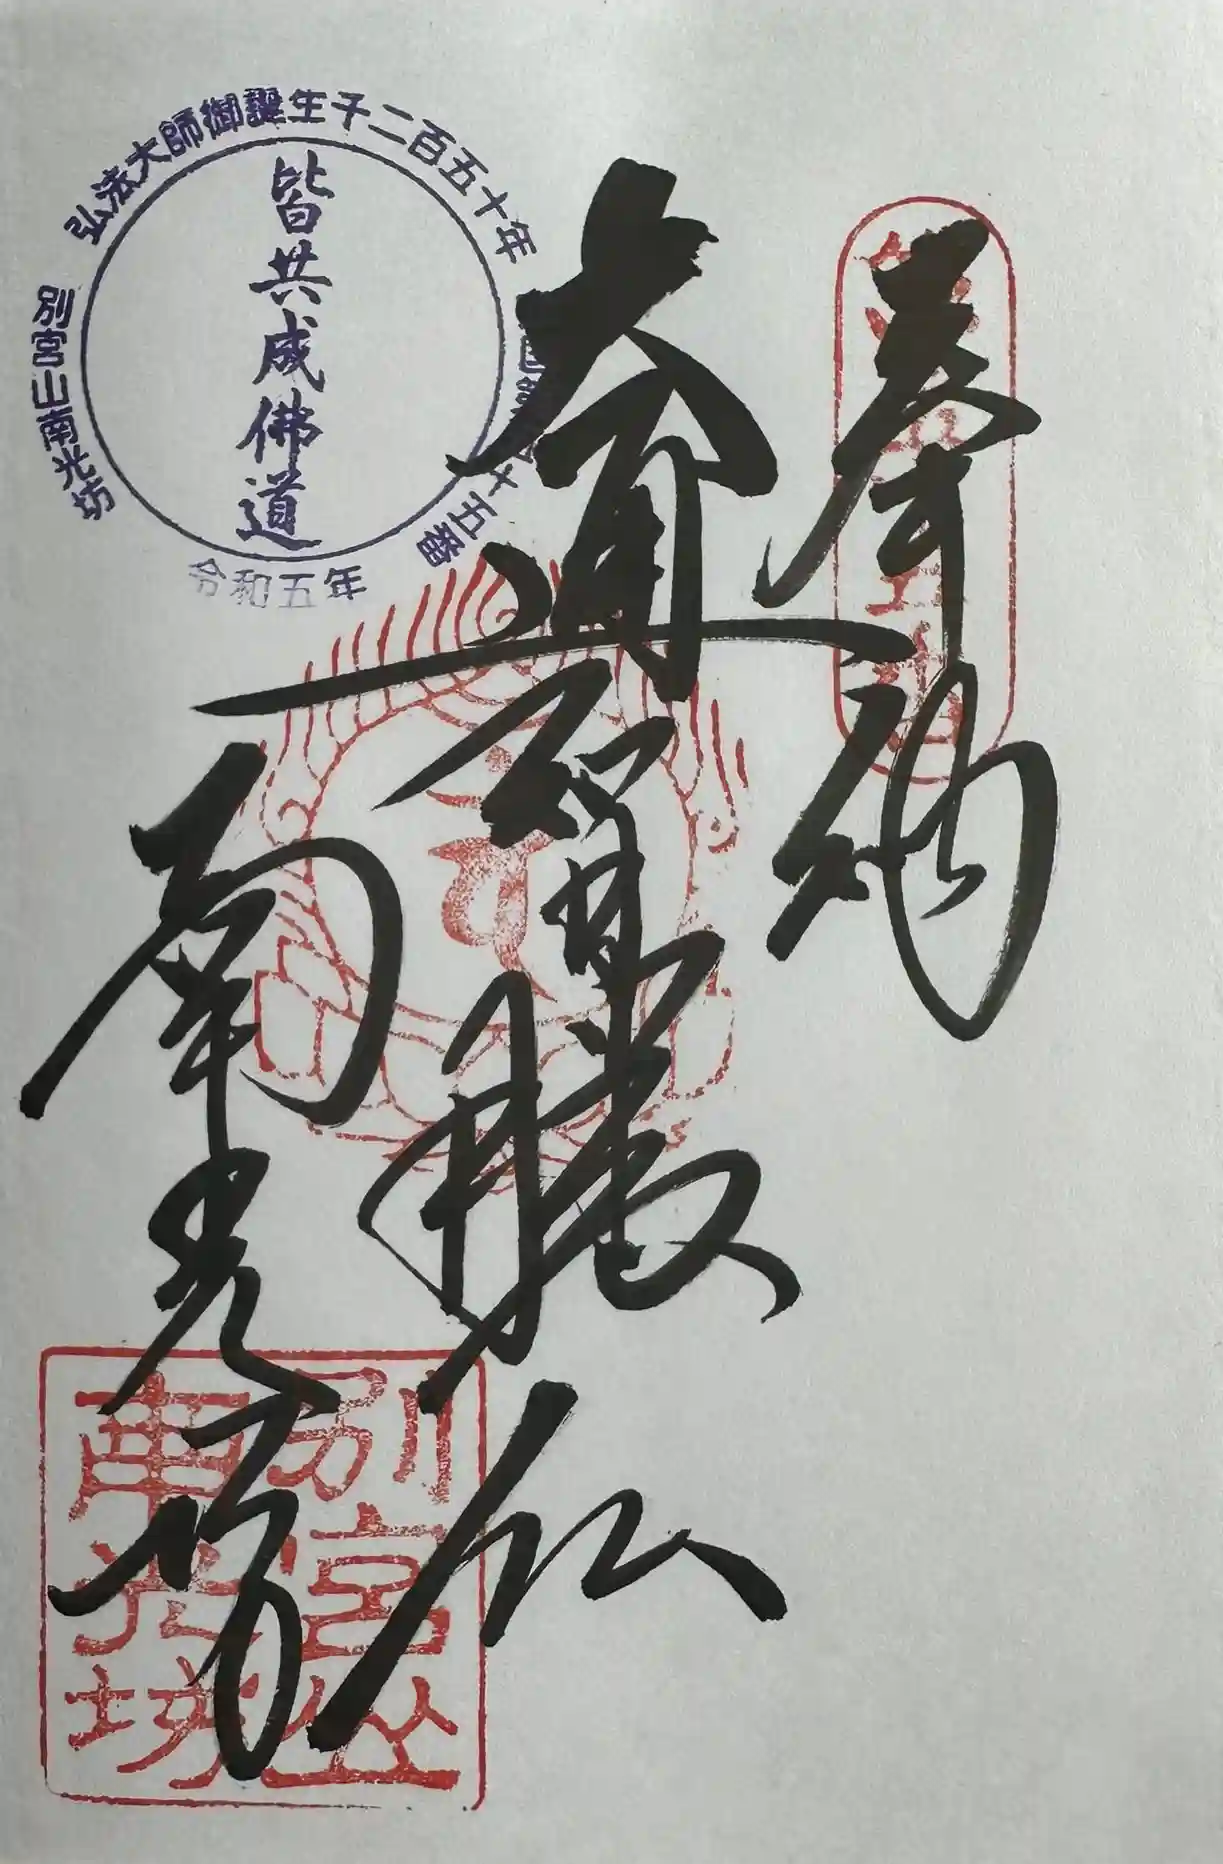 奉納
大通智勝仏
南光坊
弘法大師御誕生千二百五十年
四国第五十五番
別宮山南光坊
令和五年
皆共成佛道
別宮山
南光坊